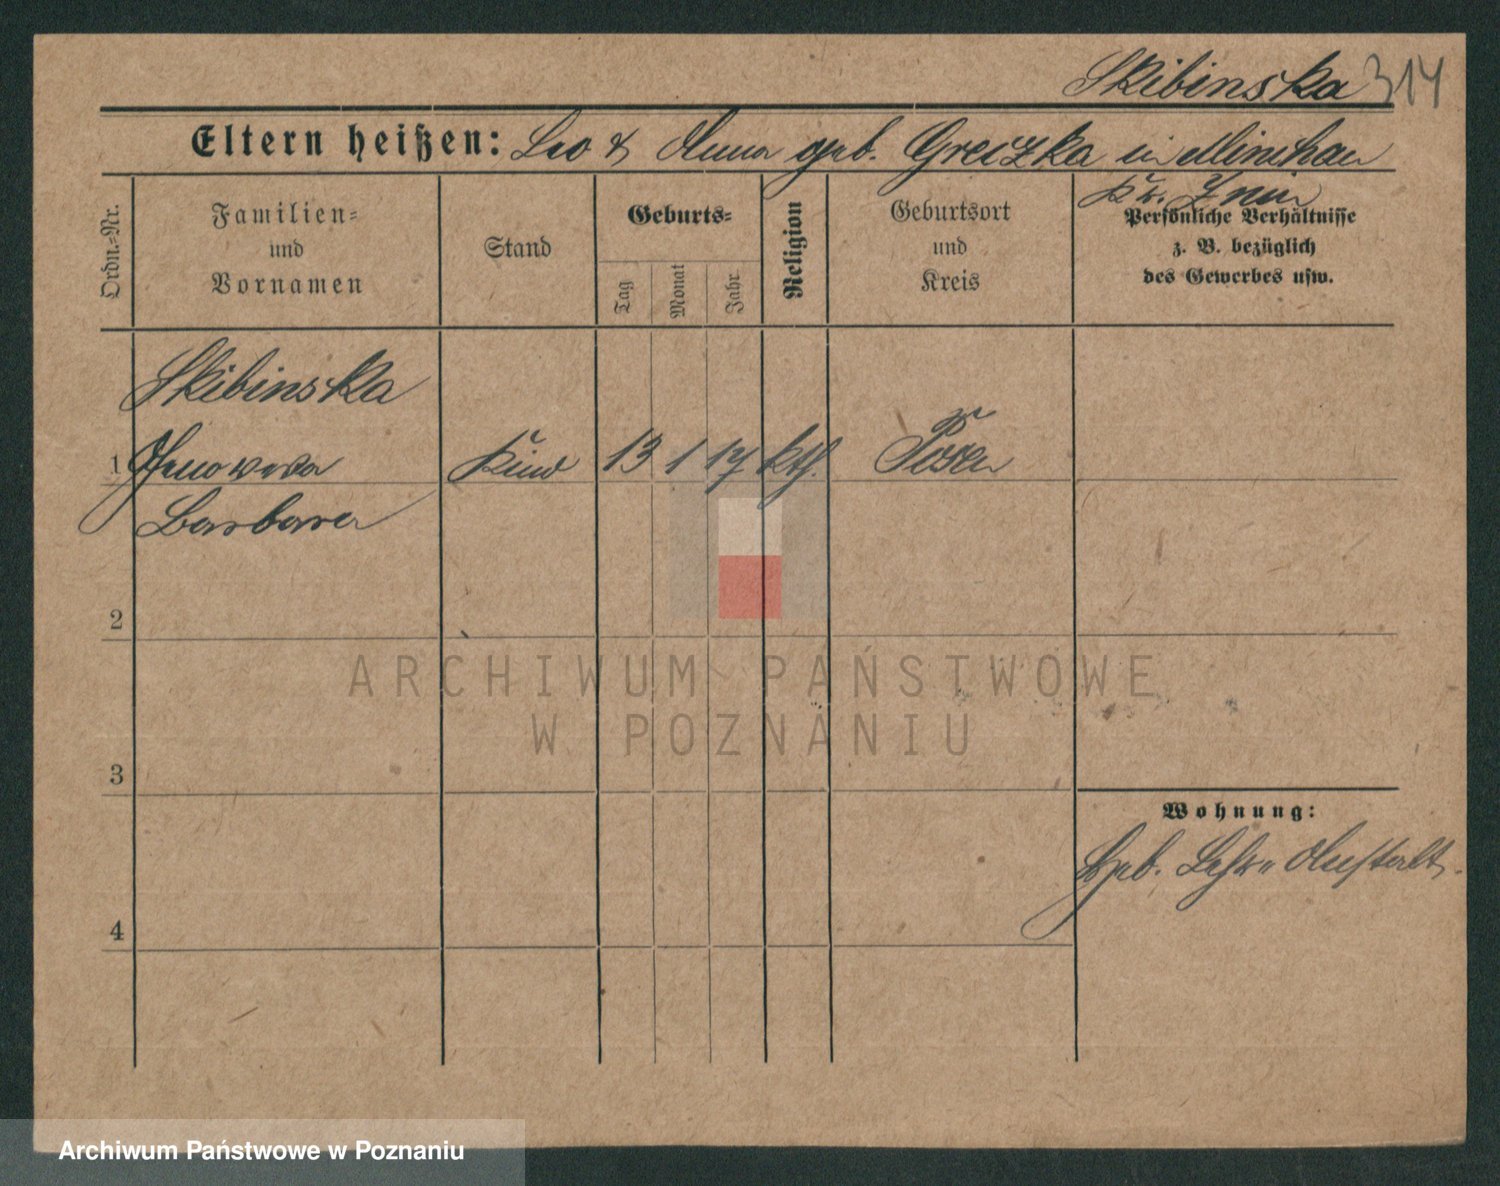 Skibinska 314
Eltern heißen: Leo & Anna geb. Greczka in Minchau
Kr. Znin
Ordn.-Nr.
Familien-
und
Vornamen
Stand
Geburts-
Tag
Monat
Jahr
Religion
Geburtsort
und
Kreis
Persönliche Verhältnisse
z. B. bezüglich
des Gewerbes usw.
Skibinska
1 Genoveva Kind 13 1 17 kth. Posen
Barbara
2
3
4
Wohnung:
Heb. Lehr Anstalt.
ARCHIWUM PAŃSTWOWE
W POZNANIU
Archiwum Państwowe w Poznaniu